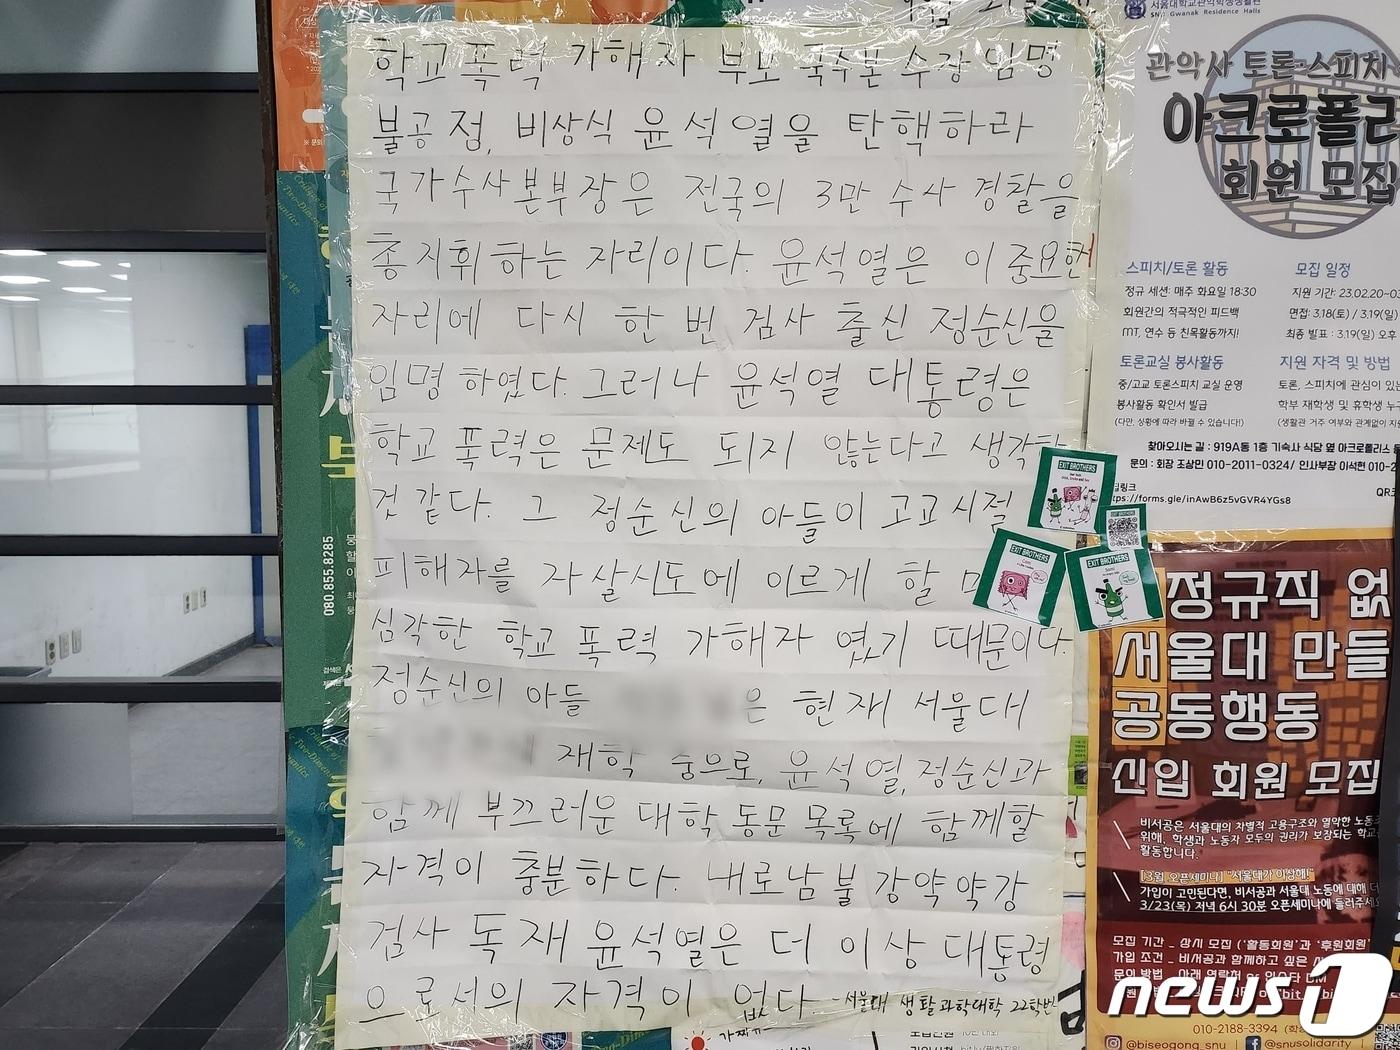 학교폭력 가해자 부모 국수본 수장 임명
불공정, 비상식 윤석열을 탄핵하라
국가수사본부장은 전국의 3만 수사 경찰을
총지휘하는 자리이다. 윤석열은 이 중요한
자리에 다시 한 번 검사 출신 정순신을
임명 하였다. 그러나 윤석열 대통령은
학교 폭력은 문제도 되지 않는다고 생각한
것 같다. 그 정순신의 아들이 고교시절
피해자를 자살시도에 이르게 할
심각한 학교 폭력 가해자 였기 때문이다.
정순신의 아들 은 현재 서울대
재학 중으로, 윤석열, 정순신과
함께 부끄러운 대학 동문 목록에 함께할
자격이 충분하다. 내로남불 강약약강
검사 독재 윤석열은 더 이상 대통령
으로서의 자격이 없다. -서울대 생활과학대학 22학번
080.855.8285
EXIT BROTHERS
EXIT BROTHERS
EXIT BROTHERS
서울대학교관악학생생활관
SNU Gwanak Residence Halls
관악사 토론·스피치
아크로폴리
회원 모집
스피치/토론 활동
정규 세션: 매주 화요일 18:30
회원간의 적극적인 피드백
MT, 연수 등 친목활동까지!
모집 일정
지원 기간: 23.02.20~03
면접: 3.18(토) / 3.19(일)
최종 발표 : 3.19(일) 오후
토론교실 봉사활동
중/고교 토론스피치 교실 운영
봉사활동 확인서 발급
(다만, 상황에 따라 바뀔 수 있습니다!)
지원 자격 및 방법
토론, 스피치에 관심이 있는
학부 재학생 및 휴학생 누구
찾아오시는 길 : 919A동 1층 기숙사 식당 옆 아크로폴리스
문의 : 회장 조상민 010-2011-0324/ 인사부장 이석현 010-2
링크
ps://forms.gle/inAwB6z5vGVR4YGs8
정규직 없
서울대 만들
공동행동
신입 회원 모집
비서공은 서울대의 차별적 고용구조와 열악한 노동조
위해, 학생과 노동자 모두의 권리가 보장되는 학교
활동합니다.
[3월 오픈세미나] "서울대가 이상해!"
가입이 고민된다면, 비서공과 서울대 노동에 대해 더
3/23(목) 저녁 6시 30분 오픈세미나에 들러주세
모집 기간 _ 상시 모집 ('활동회원'과 '후원회원'
가입 조건 _ 비서공과 함께하고 싶은
문의 방법 _ 아래 연락처 or 인스타 DM
010-2188-3394
@biseogong_snu
@snusolidarity
news1